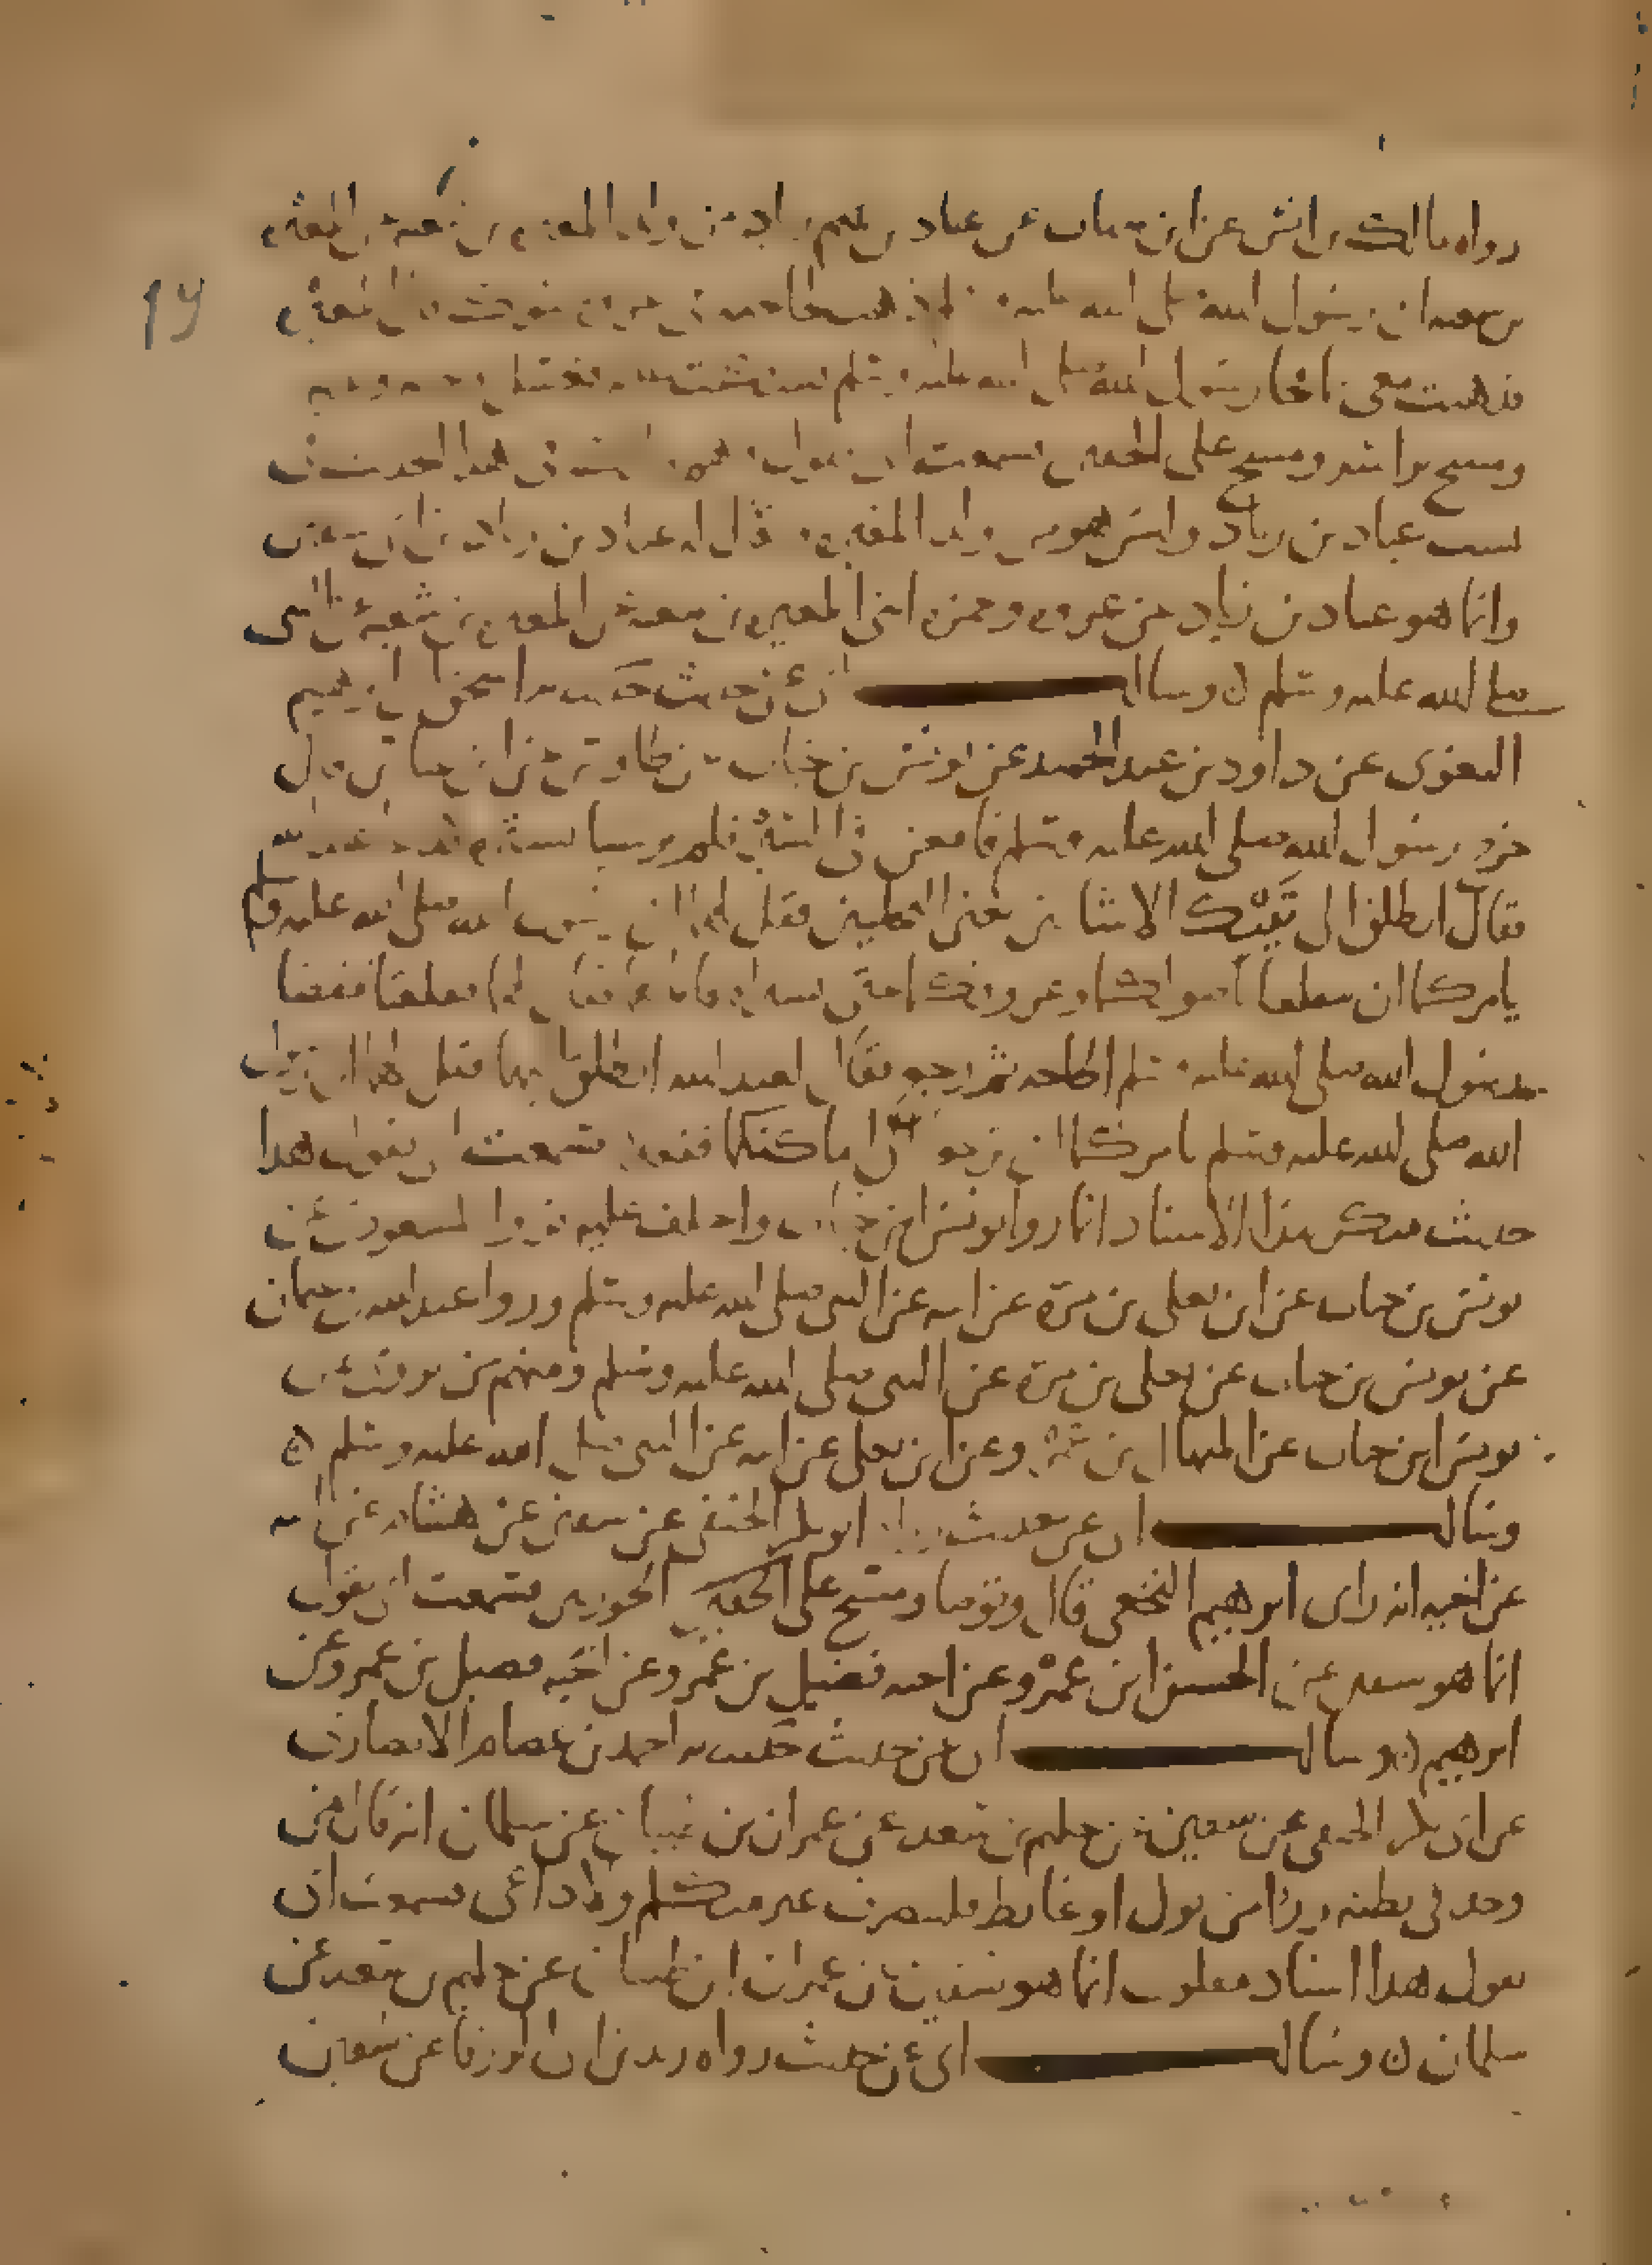 رواه مالك بن انس عن ابن شهاب عن عباد بن زياد من ولد المغيره بن شعبه عن المغيره
بن شعبه ان رسول الله صلى الله عليه ذهب لحاجته في غزوه تبوك قال المغيره
فذهبت معي بماء فجا رسول الله صلى الله عليه وسلم فسكبت عليه فغسل وجهه ويديه
ومسح براسه ومسح على الخفين سمعت ابي يقول وهم مالك في هذا الحديث في
نسب عباد بن زياد وليس هو من ولد المغيره ويقال له عباد بن زياد بن ابي سفين
وانما هو عباد بن زياد عن عروه وحمزه ابني المغيره بن شعبه عن المغيره بن شعبه عن النبي
صلى الله عليه وسلم ن وسالـــت ابي عن حديث حدثنا به اسحق بن ابرهيم
البغوى عن داود بن عبد الحميد عن يونس بن خباب عن طاوس عن ابن عباس قال
خرج رسول الله صلى الله عليه وسلم فامعن في المشي فلم ير شيا يستتر به
فقال انطلق الى تيك الاشا بين يعني النخلتين فقل لهما ان رسول الله صلى الله عليه وسلم
يامركما ان تقلعا اصولكما وعروقكما حتى فقال لهما فقلعتا فقضا
رسول الله صلى الله عليه وسلم الحاجه ثم رجع فقال لعبد الله انطلق اليهما فقل لهما ان رسول
الله صلى الله عليه وسلم يامركما ان ترجعا الى ما كنتما ففعل فسمعت ابي يقول هذا
حديث منكر بهذا الاسناد انما روا يونس ابن خباب واختلف عليه فروا المسعودي عن
يونس بن خباب عن ابن يعلى بن مرة عن ابيه عن النبي صلى الله عليه وسلم وروا عبد الله بن عثمان
عن يونس بن خباب عن يعلى بن مرة عن النبي صلى الله عليه وسلم ومنهم من يروي عن
يونس ابن خباب عن المنهال بن عمرو وعن ابن يعلى عن ابيه عن النبي صلى الله عليه وسلم ن
وسالـــت ابي عن حديث رواه ابو بكر الحنفي عن سفين عن هشام عن ابيه
عن اخيه انه راى ابرهيم النخعي قال وتوضا ومسح على الخفين الجوربين فسمعت ابي يقول
انما هو سفين عن الحسن ابن عمرو عن اخيه فضيل بن عمرو عن اخيه فضيل بن عمرو عن
ابرهيم ن وسالـــت ابي عن حديث حدثنا به احمد بن عصام الانصاري
عن ابي بكر الحنفي عن سفين عن حكيم بن سعد عن عمران بن ظبيان عن سلمان انه قال من
وجد في بطنه رزا من بول او غايط فلينصرف غير متكلم ولا داعي فسمعت ابي
يقول هذا اسناد مقلوب انما هو سفين عن عمران ابن ظبيان عن حكيم بن سعد عن
سلمان ن وسالـــت ابي عن حديث رواه زيد بن ابي الزرقا عن سفين